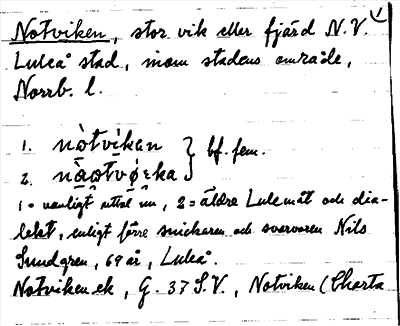 Notviken, stor vik eller fjärd N.V.
Luleå stad, inom stadens område,
Norrb. l.
1. nòtvìkən } bf. fem.
2. nàotvǿ̀ɛka
1 = vanligt uttal nu, 2 = äldre Lulemål och dia-
lekt, enligt förre snickaren och svarvaren Nils
Sundgren, 69 år, Luleå.
Notviken ek, G. 37 S.V., Notviken (Charta